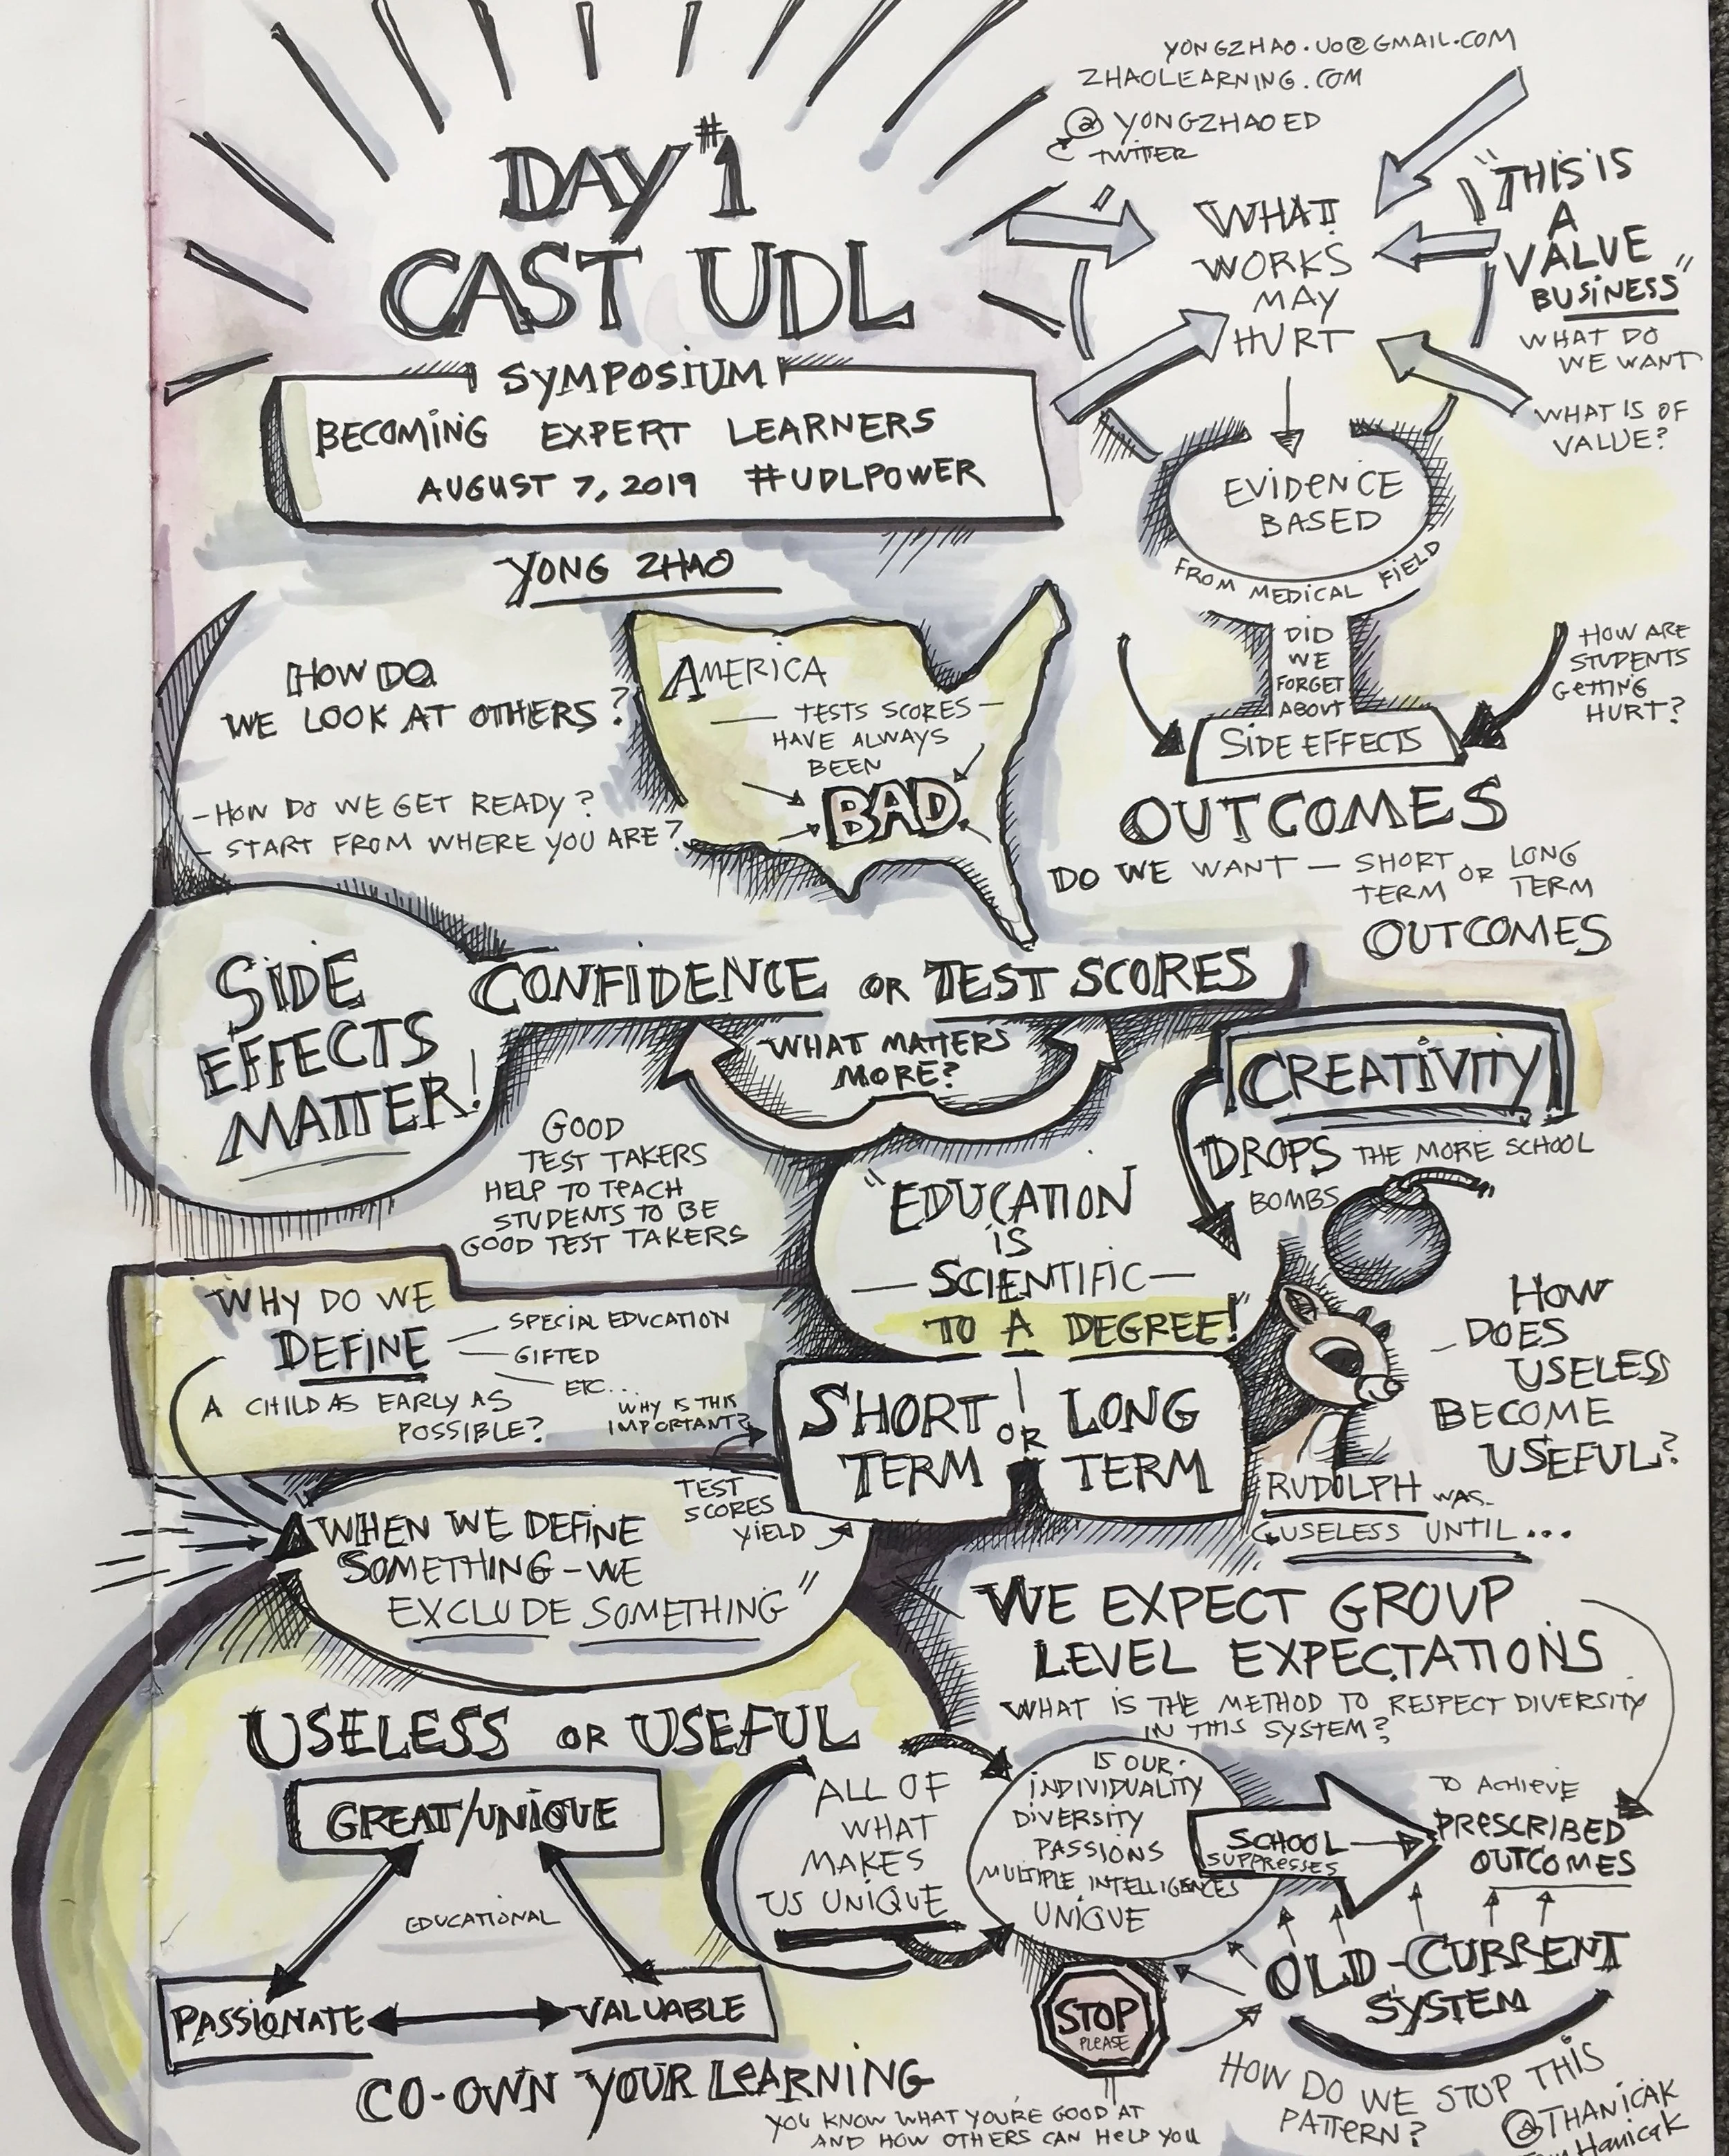 DAY #1
CAST UDL
SYMPOSIUM
BECOMING EXPERT LEARNERS
AUGUST 7, 2019 #UDLPOWER
YONG ZHAO
YONGZHAO.UO@GMAIL.COM
ZHAOLEARNING.COM
@YONGZHAOED
TWITTER
WHAT
WORKS
MAY
HURT
"THIS IS
A
VALUE
BUSINESS"
WHAT DO
WE WANT
WHAT IS OF
VALUE?
EVIDENCE
BASED
FROM MEDICAL FIELD
DID
WE
FORGET
ABOUT
SIDE EFFECTS
HOW ARE
STUDENTS
GETTING
HURT?
HOW DO
WE LOOK AT OTHERS?
- HOW DO WE GET READY?
- START FROM WHERE YOU ARE?
AMERICA
— TESTS SCORES —
HAVE ALWAYS
BEEN
BAD
OUTCOMES
DO WE WANT — SHORT TERM OR LONG TERM
OUTCOMES
SIDE
EFFECTS
MATTER!
CONFIDENCE OR TEST SCORES
WHAT MATTERS
MORE?
GOOD
TEST TAKERS
HELP TO TEACH
STUDENTS TO BE
GOOD TEST TAKERS
CREATIVITY
DROPS THE MORE SCHOOL
BOMBS
"EDUCATION
IS
— SCIENTIFIC —
TO A DEGREE!"
WHY DO WE
DEFINE
SPECIAL EDUCATION
GIFTED
ETC...
A CHILD AS EARLY AS
POSSIBLE?
WHY IS THIS
IMPORTANT?
SHORT OR LONG
TERM TERM
TEST
SCORES
YIELD
HOW
DOES
USELESS
BECOME
USEFUL?
RUDOLPH WAS
USELESS UNTIL...
WHEN WE DEFINE
SOMETHING - WE
EXCLUDE SOMETHING"
WE EXPECT GROUP
LEVEL EXPECTATIONS
WHAT IS THE METHOD TO RESPECT DIVERSITY
IN THIS SYSTEM?
USELESS OR USEFUL
GREAT/UNIQUE
EDUCATIONAL
PASSIONATE
VALUABLE
ALL OF
WHAT
MAKES
US UNIQUE
IS OUR
INDIVIDUALITY
DIVERSITY
PASSIONS
MULTIPLE INTELLIGENCES
UNIQUE
SCHOOL
SUPPRESSES
TO ACHIEVE
PRESCRIBED
OUTCOMES
OLD-CURRENT
SYSTEM
STOP
PLEASE
HOW DO WE STOP THIS
PATTERN?
CO-OWN YOUR LEARNING
YOU KNOW WHAT YOU'RE GOOD AT
AND HOW OTHERS CAN HELP YOU
@THANICAK
Hanicak